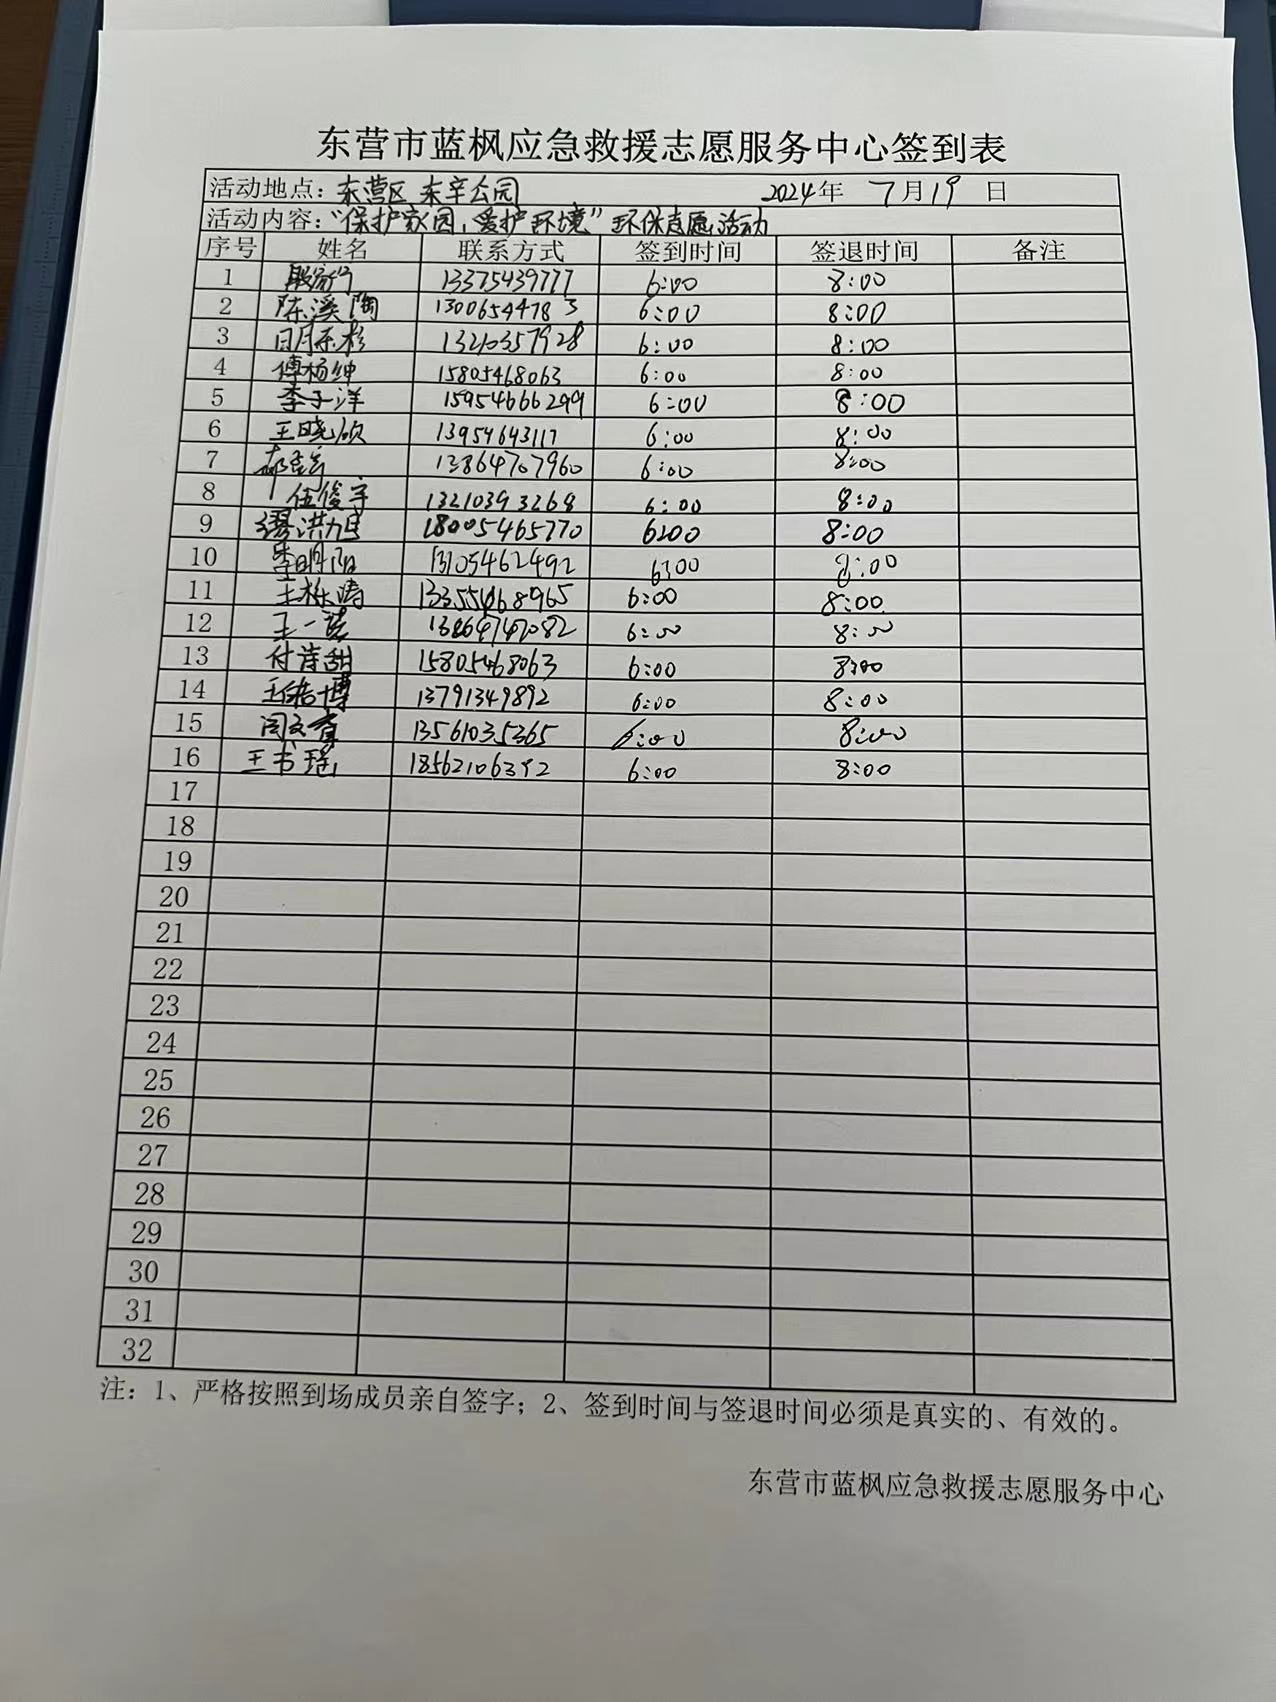 东营市蓝枫应急救援志愿服务中心签到表
活动地点：东营区 东辛公园 2024年 7月19日
活动内容：“保护家园，爱护环境”环保志愿活动
序号 姓名 联系方式 签到时间 签退时间 备注
1 13375439777 6:00 8:00
2 陈溪陶 13006544783 6:00 8:00
3 13210357928 6:00 8:00
4 傅杨绅 15805468063 6:00 8:00
5 李子洋 15954666299 6:00 8:00
6 王晓硕 13954643117 6:00 8:00
7 13864707960 6:00 8:00
8 伍俊宇 13210393268 6:00 8:00
9 18005465770 6:00 8:00
10 李明阳 13105462492 6:00 8:00
11 王栋涛 13355468965 6:00 8:00
12 13864747082 6:00 8:00
13 付诗甜 15805468063 6:00 8:00
14 王皓博 13791349892 6:00 8:00
15 13561035365 6:00 8:00
16 王书瑶 18562106392 6:00 8:00
17
18
19
20
21
22
23
24
25
26
27
28
29
30
31
32
注：1、严格按照到场成员亲自签字；2、签到时间与签退时间必须是真实的、有效的。
东营市蓝枫应急救援志愿服务中心